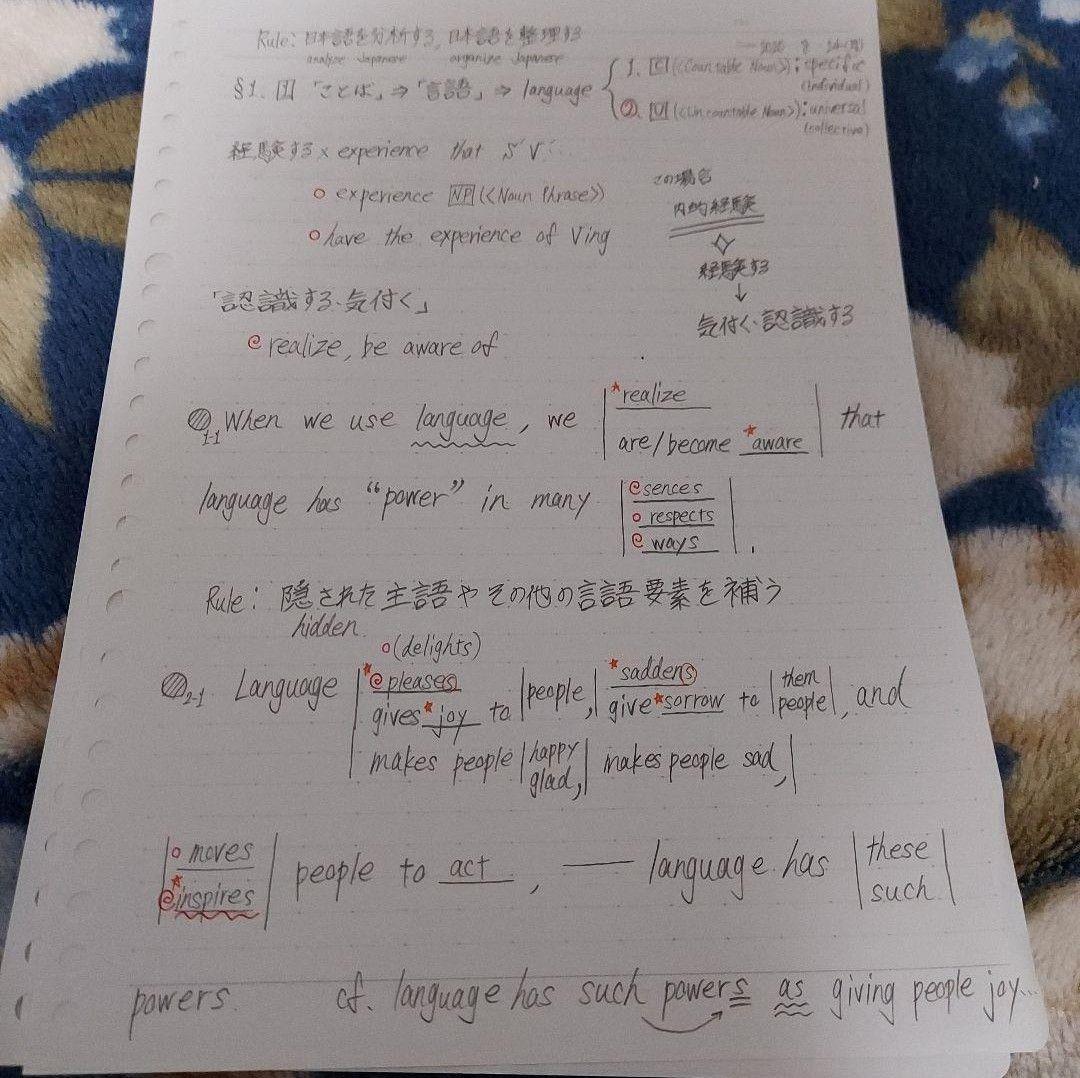 Rule: 日本語を分析する, 日本語を整理する
analyze Japanese organize Japanese
2020 8
§1. 1 「ことば」⇒「言語」⇒ language
1. C (<Countable Noun>); specific
(individual)
2. U (<Uncountable Noun>): universal
(collective)
経験する x experience that S'V'...
o experience NP (<Noun Phrase>)
o have the experience of Ving
この場合
内的経験
経験する
↓
気付く・認識する
「認識する・気付く」
realize, be aware of
1-1 When we use language, we | *realize | that
are/become *aware
language has "power" in many | sences |
o respects
ways.
Rule: 隠された主語やその他の言語要素を補う
hidden
o(delights)
2-1 Language | *pleases | people, | *saddens | them |, and
gives *joy to give *sorrow to people
makes people | happy | makes people sad,
glad,
| o moves | people to act, — language has | these |
*inspires such
powers. cf. language has such powers as giving people joy...